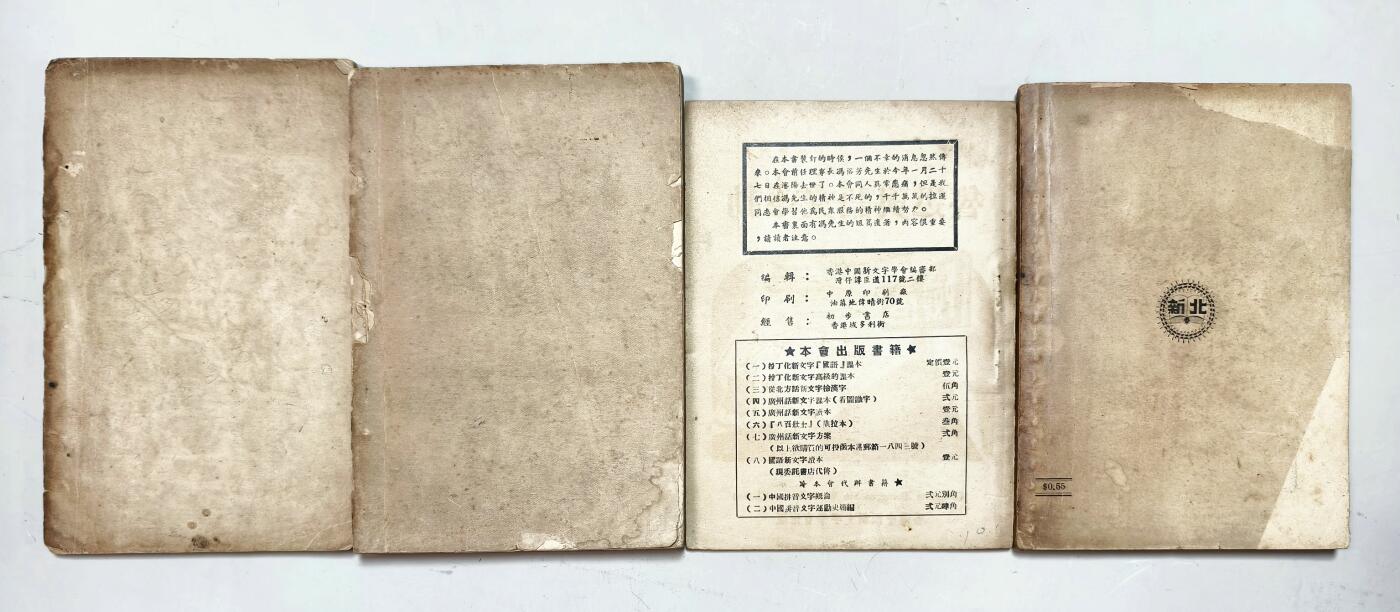 在本書裝釘的時候，一個不幸的消息忽然傳
來。本會前任理事長馮裕芳先生於今年一月二十
七日在瀋陽去世了。本會同人異常悲痛，但是我
們相信馮先生的精神是不死的，千千萬萬的拉運
同志會學習他為民眾服務的精神繼續努力。
本書裏面有馮先生的短篇遺著，內容很重要
，請讀者注意。
編輯：
香港中國新文字學會編審部
灣仔譚臣道117號二樓
印刷：
中原印刷廠
油蔴地偉晴街70號
經售：
初步書店
香港域多利街
★本會出版書籍★
（一）拉丁化新文字『國語』課本 定價壹元
（二）拉丁化新文字高級的課本 壹元
（三）從北方話新文字檢漢字 伍角
（四）廣州話新文字課本（看圖識字） 弍元
（五）廣州話新文字讀本 壹元
（六）『八百壯士』（散拉本） 叁角
（七）廣州話新文字方案 弍角
（以上欲購買的可投函本港郵箱一八四三號）
（八）國語新文字讀本 壹元
（現委託書店代售）
本會代辦書籍★
（一）中國拼音文字概論 弍元
（二）中國拼音文字運動史簡編 弍元肆角
新北
$0.55